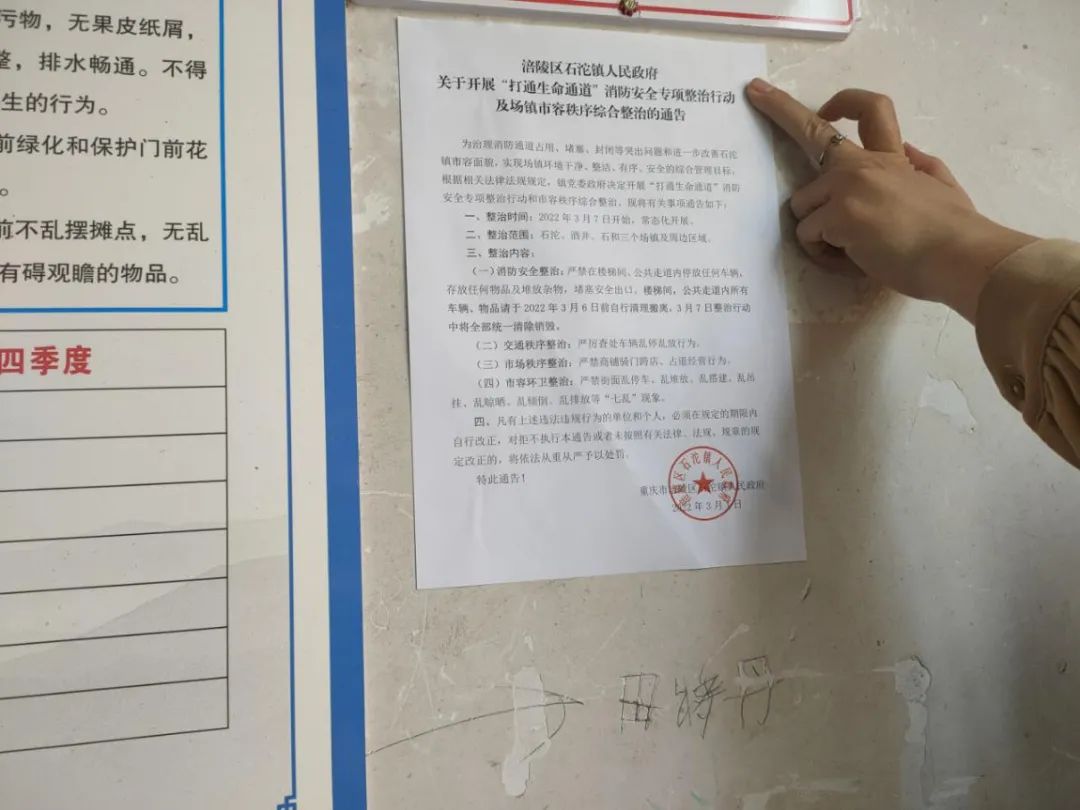 污物，无果皮纸屑，
整，排水畅通。不得
生的行为。
前绿化和保护门前花
。
前不乱摆摊点，无乱
有碍观瞻的物品。
四季度
涪陵区石沱镇人民政府
关于开展“打通生命通道”消防安全专项整治行动
及场镇市容秩序综合整治的通告
为治理消防通道占用、堵塞、封闭等突出问题和进一步改善石沱
镇市容面貌，实现场镇环境干净、整洁、有序、安全的综合管理目标，
根据相关法律法规规定，镇党委政府决定开展“打通生命通道”消防
安全专项整治行动和市容秩序综合整治。现将有关事项通告如下：
一、整治时间：2022年3月7日开始，常态化开展。
二、整治范围：石沱、酒井、石和三个场镇及周边区域。
三、整治内容：
（一）消防安全整治：严禁在楼梯间、公共走道内停放任何车辆，
存放任何物品及堆放杂物，堵塞安全出口。楼梯间，公共走道内所有
车辆、物品请于2022年3月6日前自行清理搬离，3月7日整治行动
中将全部统一清除销毁。
（二）交通秩序整治：严厉查处车辆乱停乱放行为。
（三）市场秩序整治：严禁商铺骑门跨店、占道经营行为。
（四）市容环卫整治：严禁街面乱停车、乱堆放、乱搭建、乱吊
挂、乱晾晒、乱倾倒、乱排放等“七乱”现象。
四、凡有上述违法违规行为的单位和个人，必须在规定的期限内
自行改正，对拒不执行本通告或者未按照有关法律、法规、规章的规
定改正的，将依法从重从严予以处罚。
特此通告！
重庆市涪陵区石沱镇人民政府
2022年3月1日